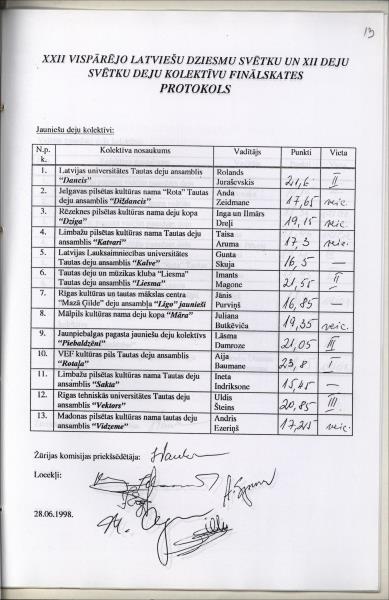 13
XXII VISPĀRĒJO LATVIEŠU DZIESMU SVĒTKU UN XII DEJU
SVĒTKU DEJU KOLEKTĪVU FINĀLSKATES
PROTOKOLS
Jauniešu deju kolektīvi:
N.p.k. Kolektīva nosaukums Vadītājs Punkti Vieta
1. Latvijas universitātes Tautas deju ansamblis Rolands
"Dancis" Juraševskis 21,6 II
2. Jelgavas pilsētas kultūras nama "Rota" Tautas Anda
deju ansamblis "Diždancis" Zeidmane 17,65 veic.
3. Rēzeknes pilsētas kultūras nama deju kopa Inga un Ilmārs
"Dziga" Dreļi 19,15 veic.
4. Limbažu pilsētas kultūras nama Tautas deju Taisa
ansamblis "Katvari" Aruma 17,3 veic.
5. Latvijas Lauksaimniecības universitātes Gunta
Tautas deju ansamblis "Kalve" Skuja 16,5 —
6. Tautas deju un mūzikas kluba "Liesma" Imants
Tautas deju ansamblis "Liesma" Magone 21,55 II
7. Rīgas kultūras un tautas mākslas centra Jānis
"Mazā Ģilde" deju ansamblis "Līgo" jaunieši Purviņš 16,85 —
8. Mālpils kultūras nama deju kopa "Māra" Juliana
Butkēviča 19,35 veic.
9. Jaunpiebalgas pagasta jauniešu deju kolektīvs Lāsma
"Piebaldzēni" Damroze 21,05 III
10. VEF kultūras pils Tautas deju ansamblis Aija
"Rotaļa" Baumane 23,8 I
11. Limbažu pilsētas kultūras nama Tautas deju Ineta
ansamblis "Sakta" Indriksone 15,45 —
12. Rīgas tehniskās universitātes Tautas deju Uldis
ansamblis "Vektors" Šteins 20,85 III
13. Madonas pilsētas kultūras nama tautas deju Andris
ansamblis "Vidzeme" Ezeriņš veic.
Žūrijas komisijas priekšsēdētāja:
Locekļi:
28.06.1998.